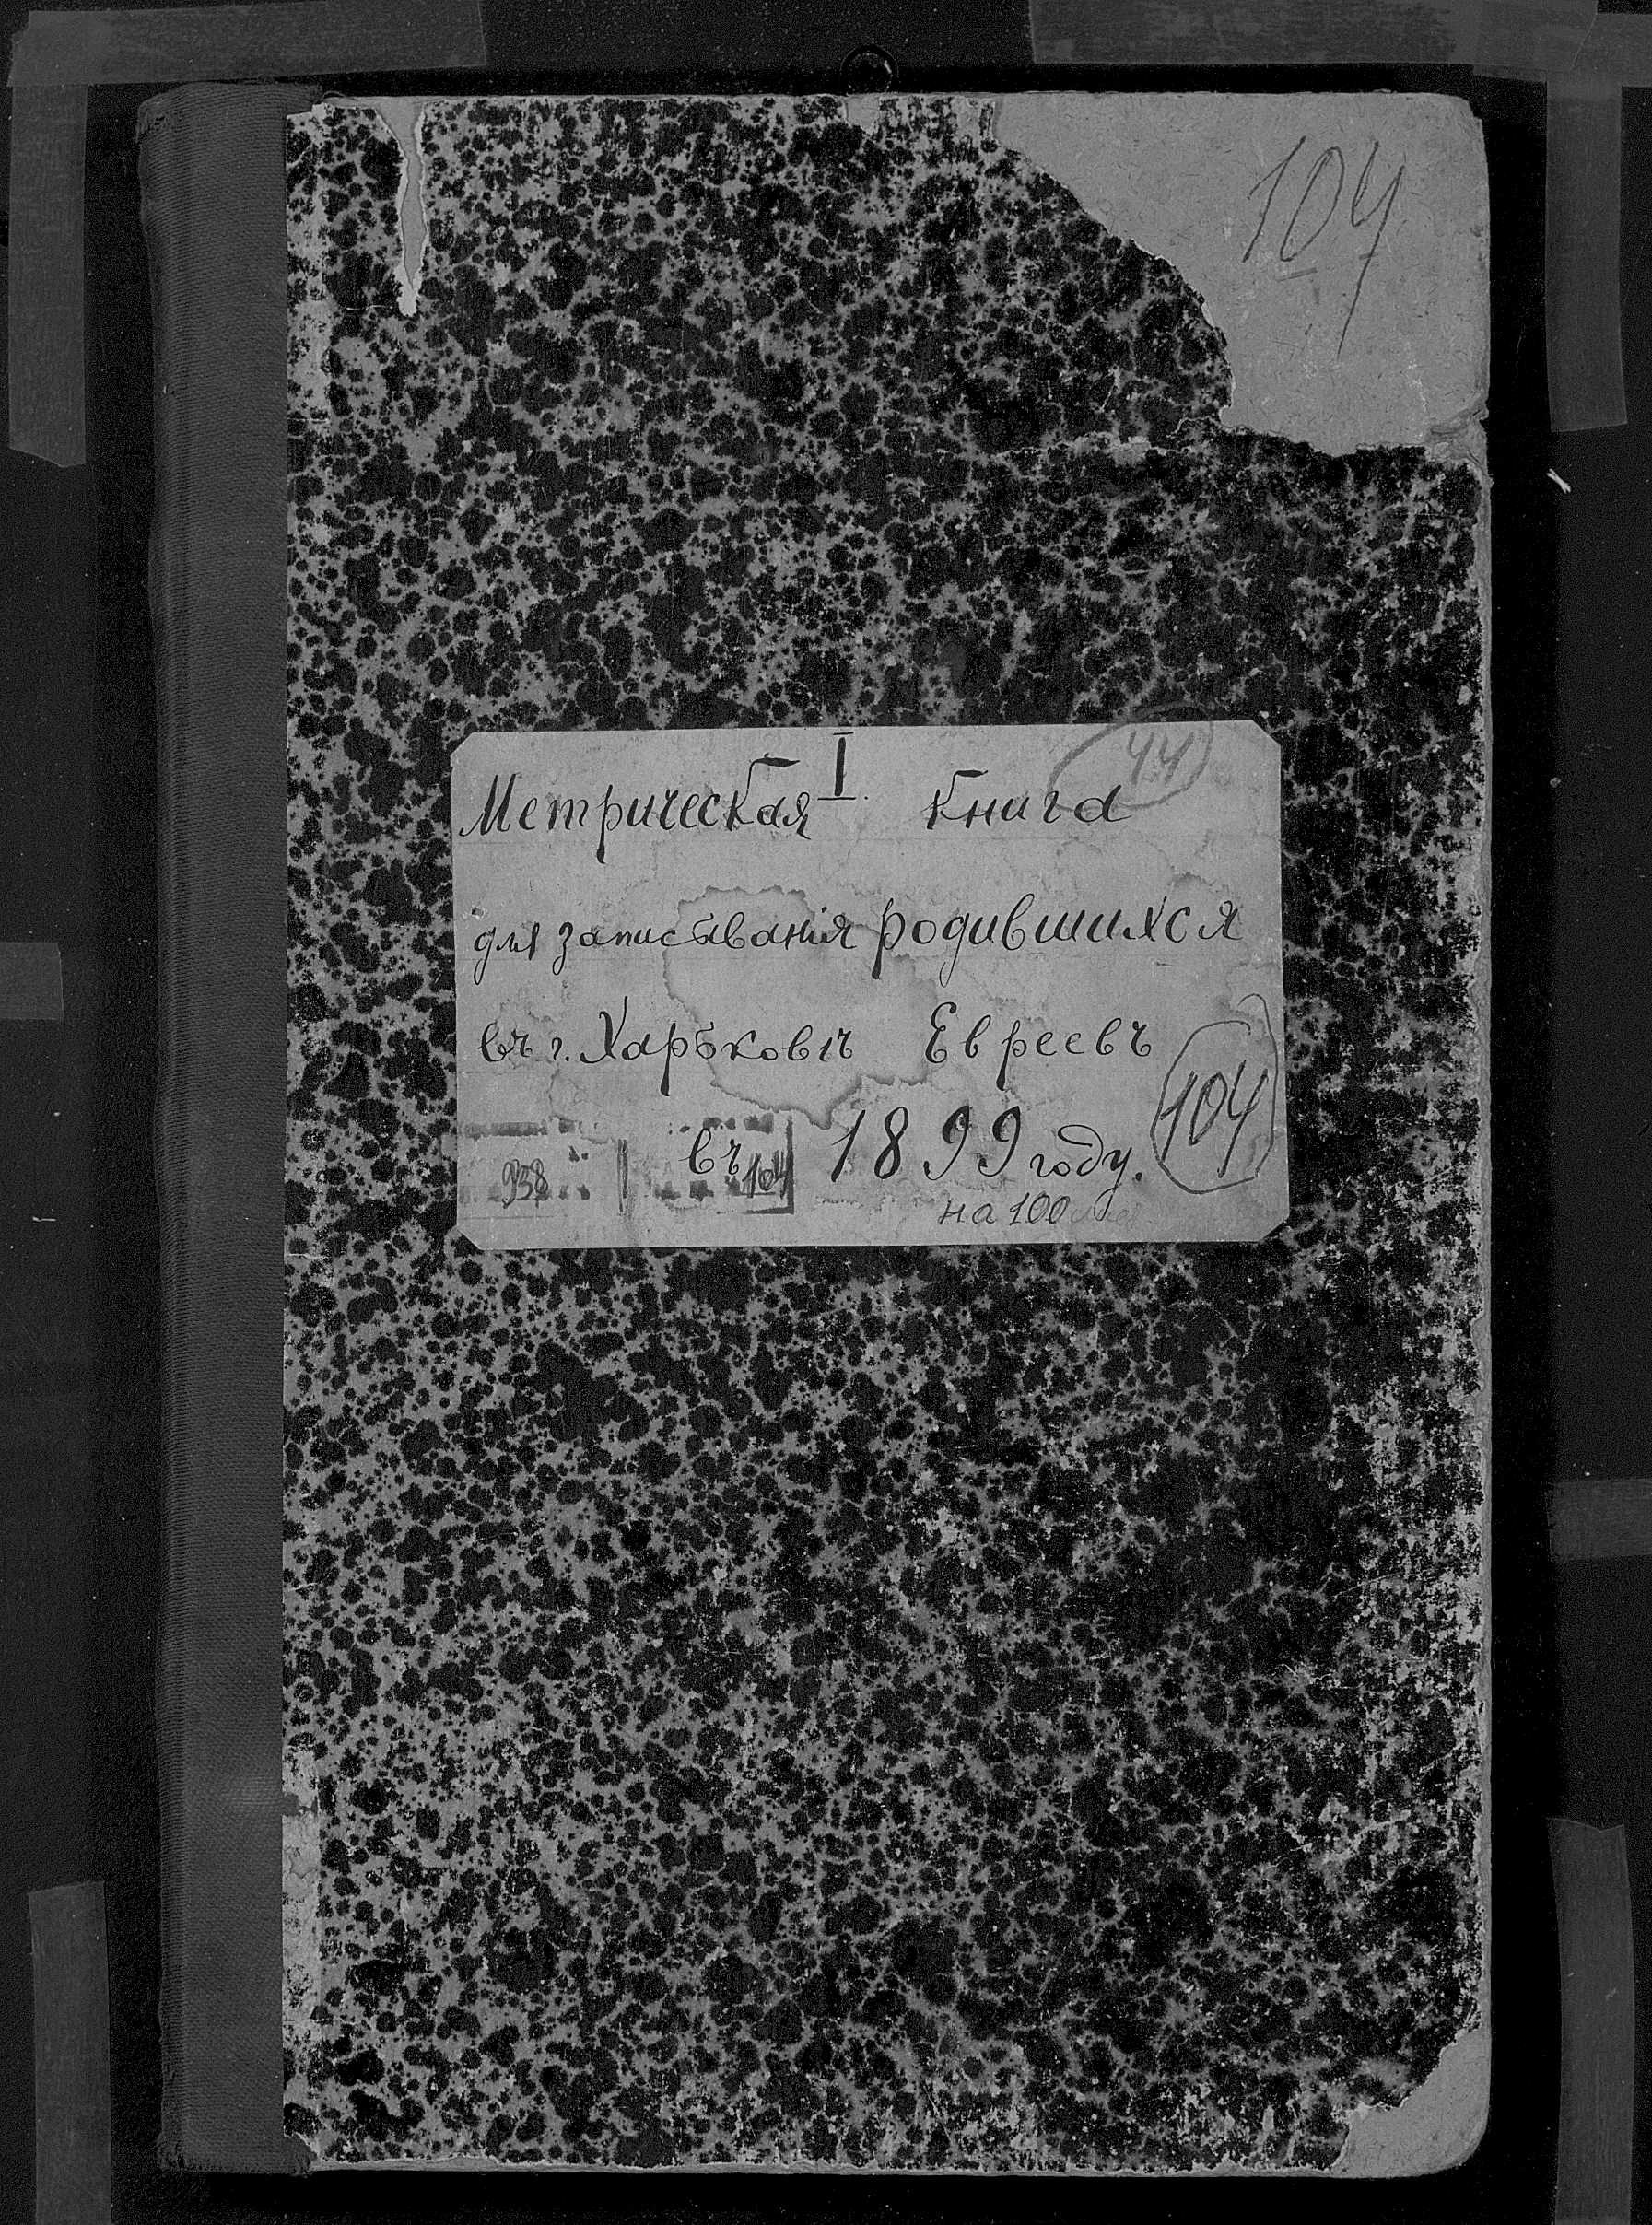 104
I
44
Метрическая Книга
для записыванія родившихся
въ г. Харьковѣ Евреевъ
104
въ 1899 году.
938
104
на 100